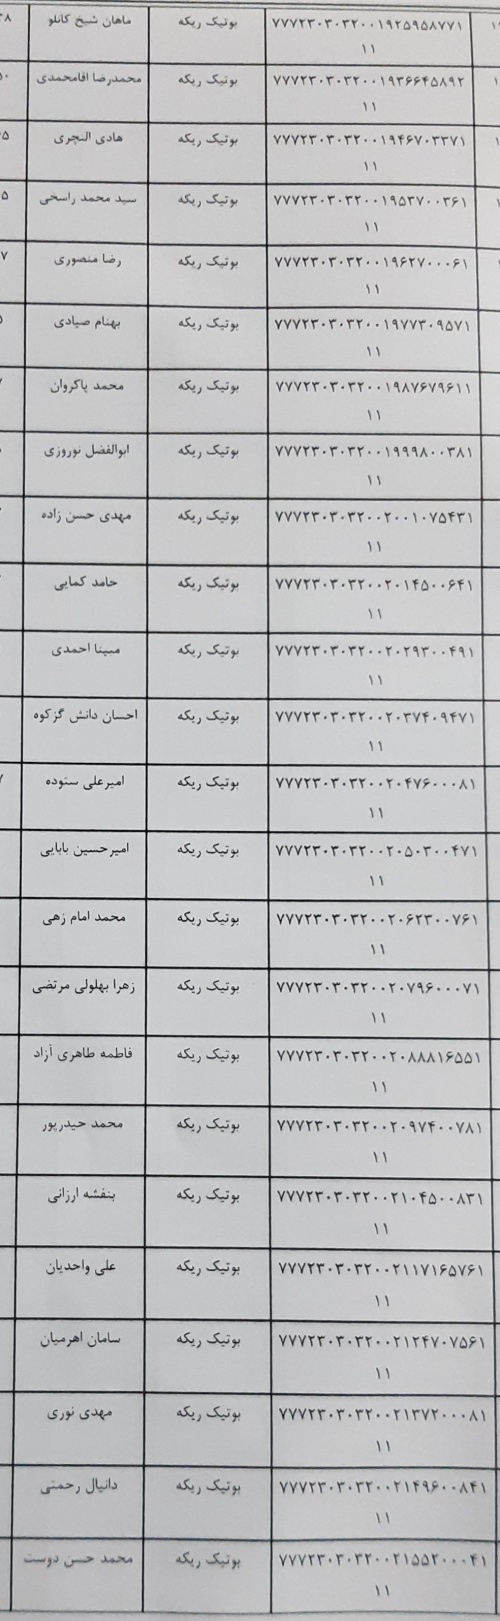 ۷۷۷۲۳۰۳۰۳۲۰۰۱۹۲۵۹۵۸۷۷۱ بوتیک ریکه ماهان شیخ کانلو
۱۱
۷۷۷۲۳۰۳۰۳۲۰۰۱۹۳۶۶۴۵۸۹۲ بوتیک ریکه محمدرضا اقامحمدی
۱۱
۷۷۷۲۳۰۳۰۳۲۰۰۱۹۴۶۷۰۳۳۷۱ بوتیک ریکه هادی النچری
۱۱
۷۷۷۲۳۰۳۰۳۲۰۰۱۹۵۳۷۰۰۳۶۱ بوتیک ریکه سید محمد راسخی
۱۱
۷۷۷۲۳۰۳۰۳۲۰۰۱۹۶۲۷۰۰۰۶۱ بوتیک ریکه رضا منصوری
۱۱
۷۷۷۲۳۰۳۰۳۲۰۰۱۹۷۷۳۰۹۵۷۱ بوتیک ریکه بهنام صیادی
۱۱
۷۷۷۲۳۰۳۰۳۲۰۰۱۹۸۷۶۷۹۶۱۱ بوتیک ریکه محمد پاکروان
۱۱
۷۷۷۲۳۰۳۰۳۲۰۰۱۹۹۹۸۰۰۳۸۱ بوتیک ریکه ابوالفضل نوروزی
۱۱
۷۷۷۲۳۰۳۰۳۲۰۰۲۰۰۱۰۷۵۴۳۱ بوتیک ریکه مهدی حسن زاده
۱۱
۷۷۷۲۳۰۳۰۳۲۰۰۲۰۱۴۵۰۰۶۴۱ بوتیک ریکه حامد کمایی
۱۱
۷۷۷۲۳۰۳۰۳۲۰۰۲۰۲۹۳۰۰۴۹۱ بوتیک ریکه مبینا احمدی
۱۱
۷۷۷۲۳۰۳۰۳۲۰۰۲۰۳۷۴۰۹۴۷۱ بوتیک ریکه احسان دانش گزکوه
۱۱
۷۷۷۲۳۰۳۰۳۲۰۰۲۰۴۷۶۰۰۰۸۱ بوتیک ریکه امیرعلی ستوده
۱۱
۷۷۷۲۳۰۳۰۳۲۰۰۲۰۵۰۳۰۰۴۷۱ بوتیک ریکه امیرحسین بابایی
۱۱
۷۷۷۲۳۰۳۰۳۲۰۰۲۰۶۲۳۰۰۷۶۱ بوتیک ریکه محمد امام زهی
۱۱
۷۷۷۲۳۰۳۰۳۲۰۰۲۰۷۹۶۰۰۰۷۱ بوتیک ریکه زهرا بهلولی مرتضی
۱۱
۷۷۷۲۳۰۳۰۳۲۰۰۲۰۸۸۸۱۶۵۵۱ بوتیک ریکه فاطمه طاهری آزاد
۱۱
۷۷۷۲۳۰۳۰۳۲۰۰۲۰۹۷۴۰۰۷۸۱ بوتیک ریکه محمد حیدرپور
۱۱
۷۷۷۲۳۰۳۰۳۲۰۰۲۱۰۴۵۰۰۸۳۱ بوتیک ریکه بنفشه ارزانی
۱۱
۷۷۷۲۳۰۳۰۳۲۰۰۲۱۱۷۱۶۵۷۶۱ بوتیک ریکه علی واحدیان
۱۱
۷۷۷۲۳۰۳۰۳۲۰۰۲۱۲۴۷۰۷۵۶۱ بوتیک ریکه سامان اهرمیان
۱۱
۷۷۷۲۳۰۳۰۳۲۰۰۲۱۳۷۲۰۰۰۸۱ بوتیک ریکه مهدی نوری
۱۱
۷۷۷۲۳۰۳۰۳۲۰۰۲۱۴۹۶۰۰۸۴۱ بوتیک ریکه دانیال رحمتی
۱۱
۷۷۷۲۳۰۳۰۳۲۰۰۲۱۵۵۲۰۰۰۴۱ بوتیک ریکه محمد حسن دوست
۱۱